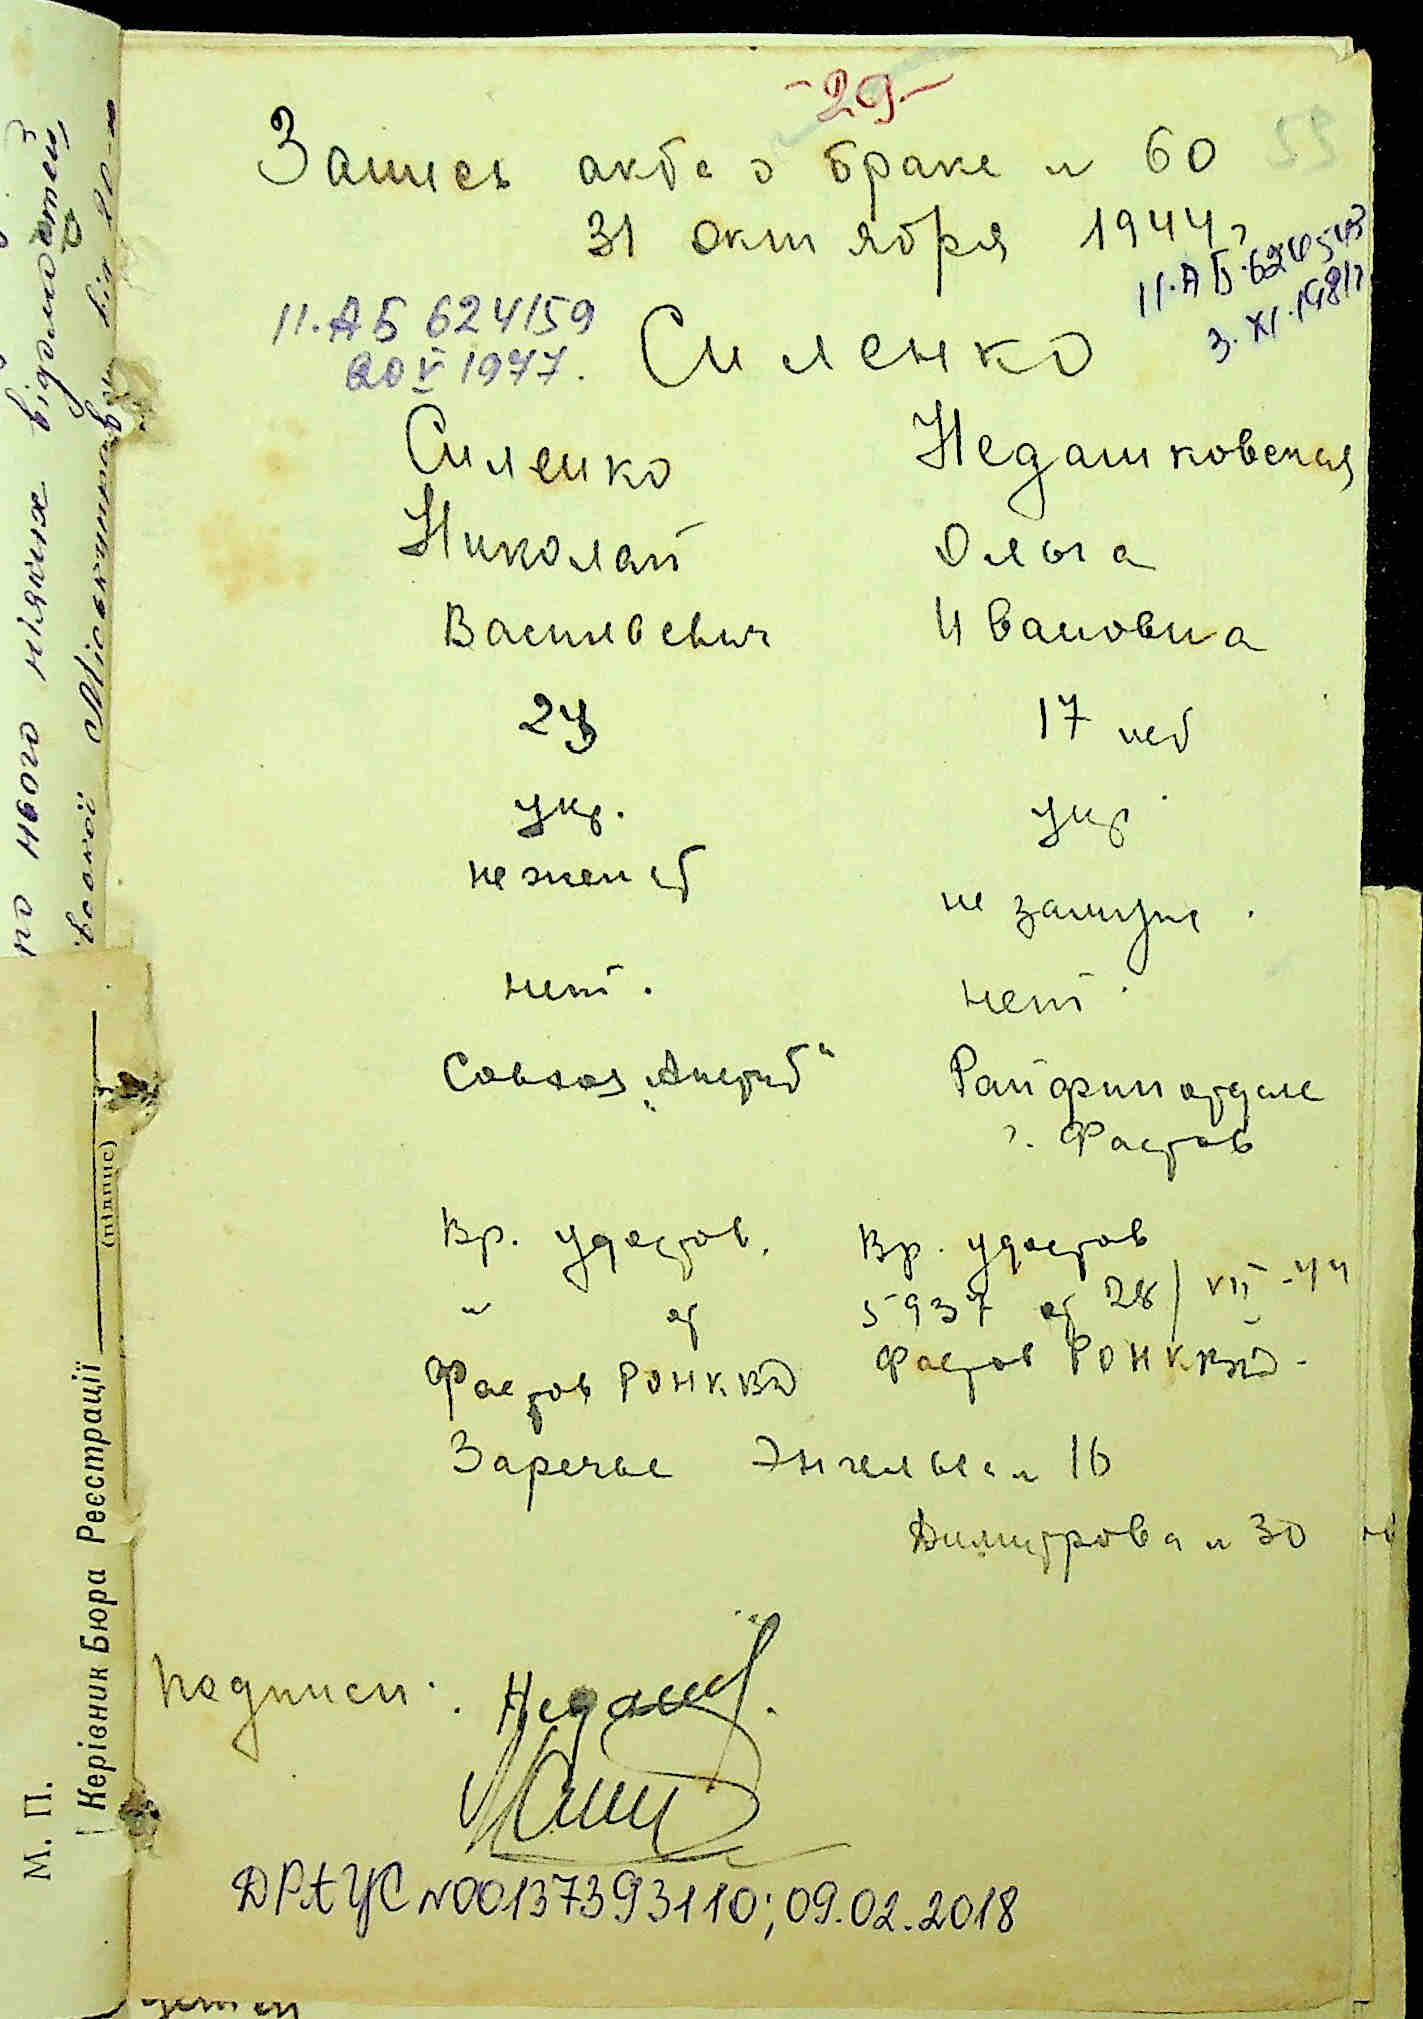 -29-
Запись акта о браке № 60
55
31 октября 1944 г
II.АБ 624543
3.XI.1981г
II.АБ 624159
20 V 1977.
Силенко
Силенко Недашковская
Николай Ольга
Васильевич Ивановна
17 лет
укр. укр
не женат не замужем.
нет. нет.
Совхоз Райфинотделе
г. Фастов
Вр. удостов. Вр. удостов
" от 5937 от 28/VII-44
Фастов РОНКВД Фастов РОНКВД-
Заречье Энгельса № 16
Димитрова № 30
Подписи: Недашк.
ДРАЦС №00137393110; 09.02.2018
по нього ніяких відомостей
М. П.
Керівник Бюра Реєстрації
(підпис)